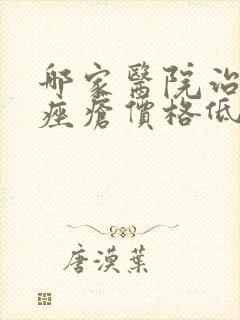 哪家醫院治
痤瘡價格低
唐漠葉